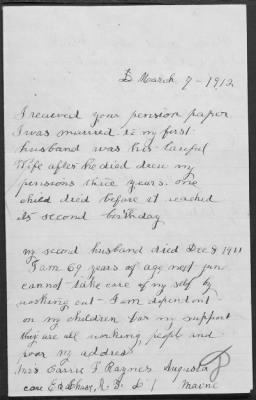 March 7 - 1912
I received your pension paper
I was married to my first
husband was his lawful
Wife after he died drew my
pensions three years. one
child died before it reached
its second birthday
my second husband died Dec 8 1911
I am 69 years of age next june
cannot take care of my self by
working out - I am dependent
on my children for my support
they are all working, peopl and
poor my address
Mrs Carrie F Raynes Augusta
care Ed Chase, R. D. 1 Maine